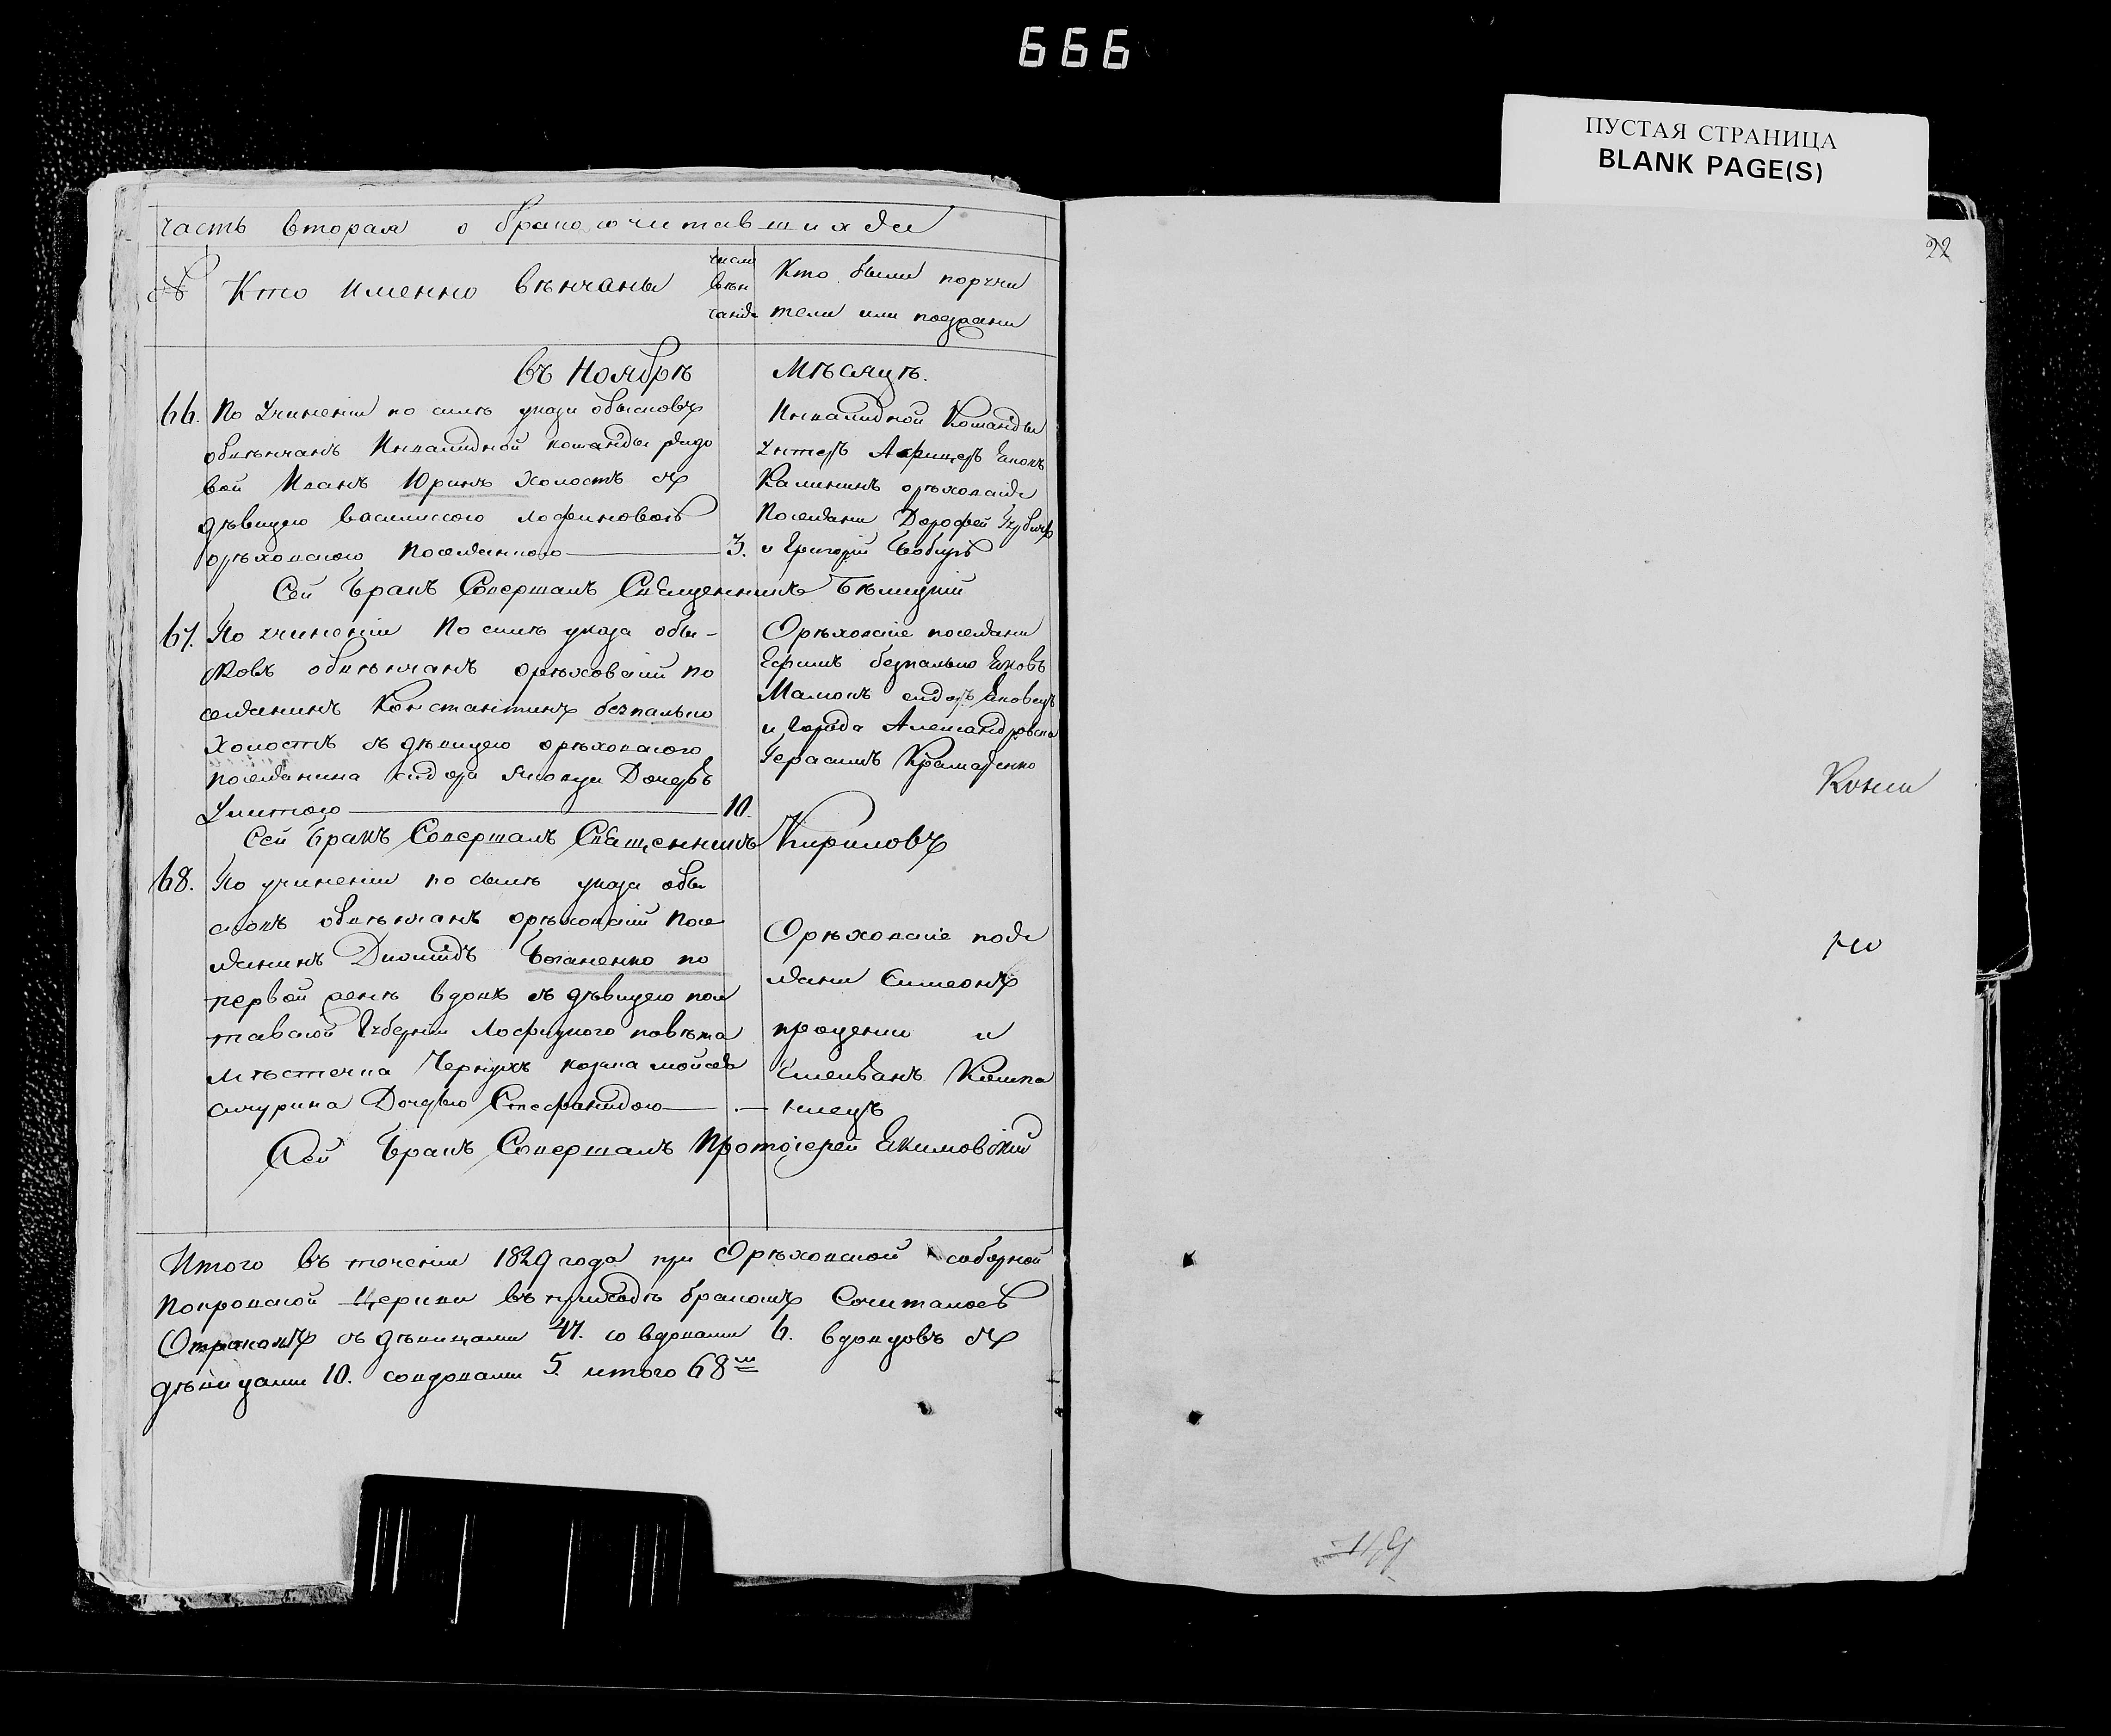 666
ПУСТАЯ СТРАНИЦА
BLANK PAGE(S)
22
часть вторая о бракосочитавшихся
№ Кто именно вѣнчаны
число вѣнчанія
Кто были поручители или поезжани
въ Ноябрѣ Мѣсяцѣ.
66. По учиненіи по силѣ указа обысковъ
обвѣнчанъ Инвалидной команды рядо
вой Иванъ Юринъ холостъ съ
дѣвицею василиссою
орѣховскою поселянкою 3.
Инвалидной Команды
Унтеръ Афицеръ Яковъ
Калининъ орѣховскіе
поселяни Дорофей
и Григорій
Сей бракъ Совершалъ Священникъ Бѣлицкій
67. По учиненіи по силѣ указа обы-
сковъ обвѣнчанъ орѣховскій по
селянинъ Константинъ безпально
холостъ съ дѣвицею орѣховскаго
поселянина сидора Яковца Дочерь
Улитою 10.
Орѣховскіе поселяни
Ефимъ безпально Яковъ
Мамонъ сидоръ Яковецъ
и города Александровска
Герасимъ Крамаренко
Сей бракъ Совершалъ Священникъ Кириловъ
68. По учиненіи по силѣ указа обы
сковъ обвѣнчанъ орѣховскій посе
лянинъ Диомидъ Боганенко по
первой женѣ вдовъ съ дѣвицею пол
тавской Губерніи Лохвицкого повѣта
мѣстечка Чернухъ козака мойсея
сичурина Дочерью Стефанидою
Орѣховскіе посе
ляни Симеонъ
проценко и
Емельанъ Компа
ніецъ
Сей бракъ Совершалъ Протоіерей Якимовскій
Итого въ теченіи 1829 года при Орѣховской соборной
Покровской Церкви въ приходѣ бракомъ Сочиталось
Отроковъ съ дѣвицами 47. со вдовами 6. вдовцовъ съ
дѣвицами 10. совдовами 5. итого 68